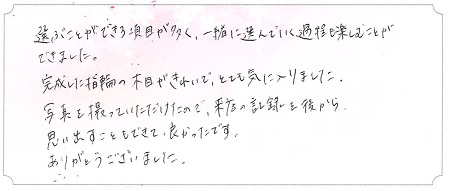 選ぶことができる項目が多く、一緒に選んでいく過程も楽しむことが
できました。
完成した指輪の木目がきれいで、とても気に入りました。
写真を撮っていただけたので、来店の記録を後から
思い出すこともできて良かったです。
ありがとうございました。